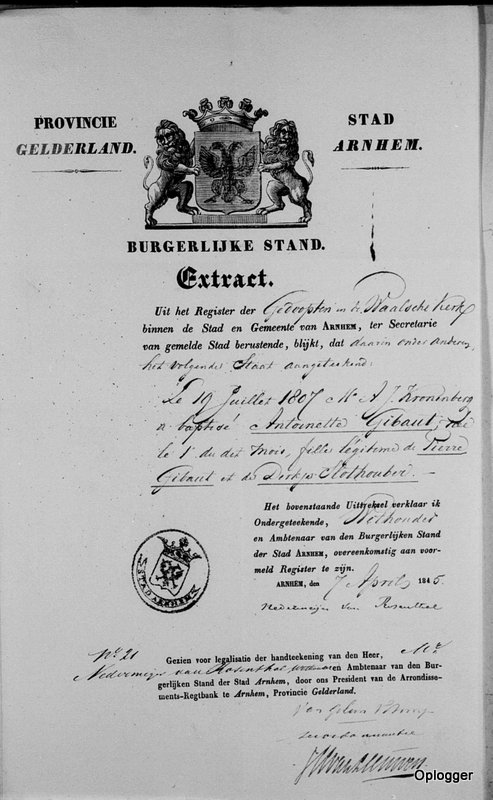 PROVINCIE GELDERLAND.
STAD ARNHEM.
BURGERLIJKE STAND.
Extract.
Uit het Register der Gedoopten in de Waalsche Kerk
binnen de Stad en Gemeente van ARNHEM, ter Secretarie
van gemelde Stad berustende, blijkt, dat daarin onder anderen
het volgende Staat aangeteekend:
Le 19 Juillet 1807 Mr A J Kronenberg
a baptisé Antoinette Gibaut, née
le 1r du dit mois, fille légitime de Pierre
Gibaut et de Derkje Slothouber.
Het bovenstaande Uittreksel verklaar ik
Ondergeteekende, Wethouder
en Ambtenaar van den Burgerlijken Stand
der Stad ARNHEM, overeenkomstig aan voor-
meld Register te zijn.
ARNHEM, den 7 April 1845.
Nedermeijer van Rosenthal
STAD ARNHEM
No 21
Gezien voor legalisatie der handteekening van den Heer, Mr
Nedermeijer van Rosenthal Wethouder en Ambtenaar van den Bur-
gerlijken Stand der Stad Arnhem, door ons President van de Arrondisse-
ments-Regtbank te Arnhem, Provincie Gelderland.
Oplogger